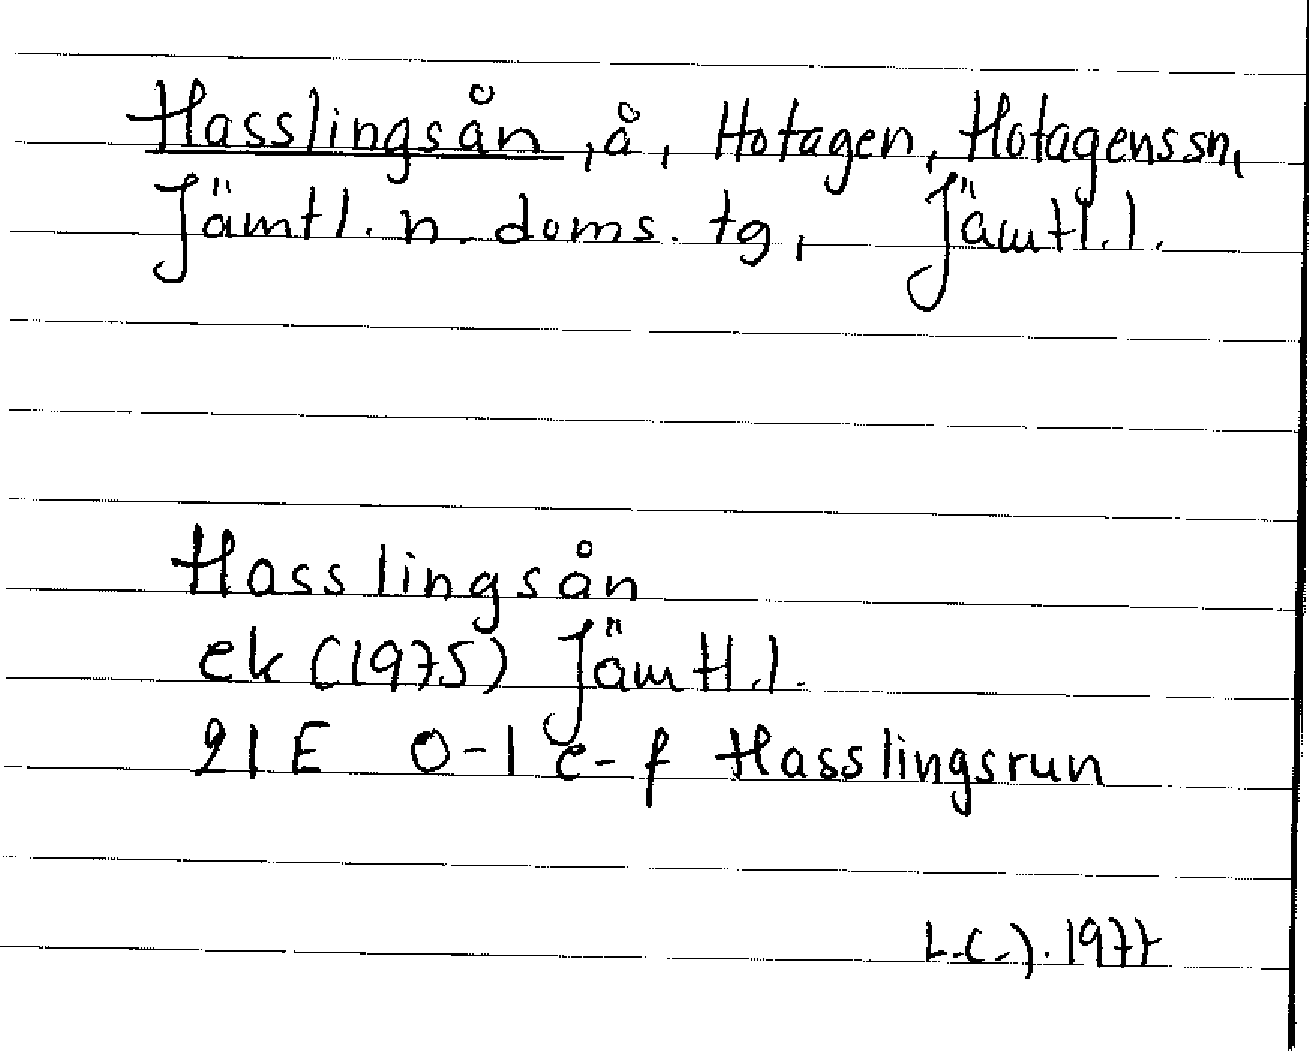 Hasslingsån, å, Hotagen, Hotagenssn,
Jämtl. n. doms. tg, Jämtl. l.
Hasslingsån
ek (1975) Jämtl. l.
21E 0-1 e-f Hasslingsrun
L.C.J. 1977